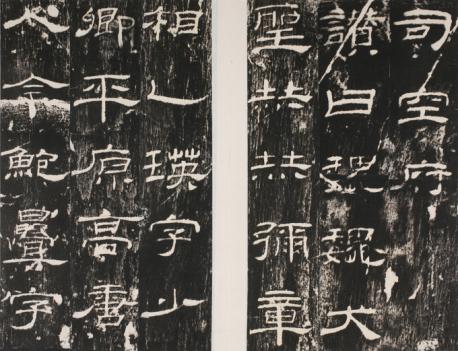 司空府
讚曰巍巍大
聖赫赫彌章
相乙瑛字少
卿平原高唐
人令鮑疊字